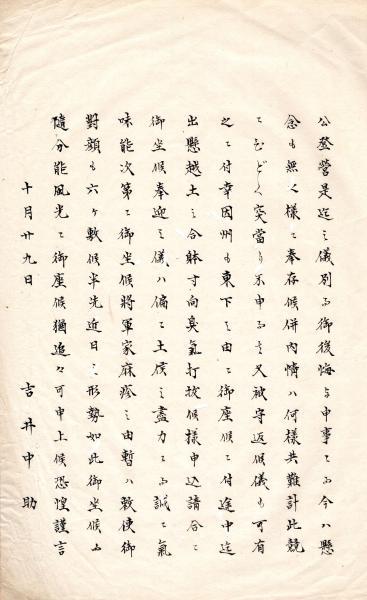 公登營是迄之儀別而御後悔与申事ニ而今ハ懸
念も無く様ニ奉存候併内情ハ何様共難計此競
てひどく突當り不申而者又被守返候儀も可有
之ニ付幸因州も東下之由ニ御座候ニ付途中迄
出懸越土之合躰寸向臭氣打拔候様申込請合ニ
御坐候奉迎之儀ハ偏ニ土侯之盡力ニ而誠ニ氣
味能次第ニ御坐候將軍家麻疹之由暫ハ敕使御
對顔も六ヶ敷候半先近日之形勢如此御坐候而
隨分能風光ニ御座候猶追々可申上候恐惶謹言
十月廿九日　吉井中助